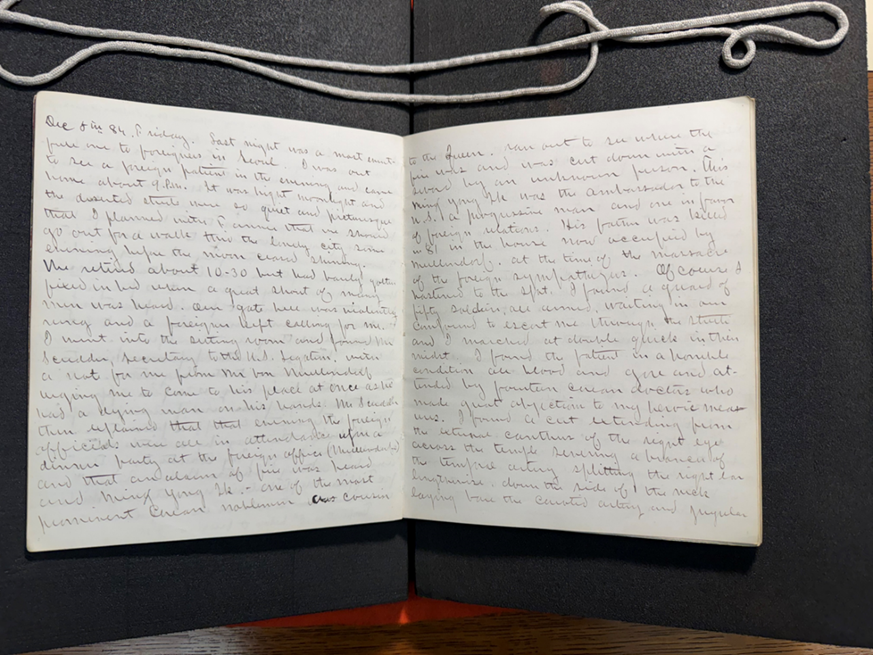 Dec 5th 84. Friday. Last night was a most event-
full one to foreigners in Seoul. I was out
to see a foreign patient in the evening and came
home about 9 P.M. It was bright moonlight and
the deserted streets were so quiet and picturesque
that I planned with Fannie that we should
go out for a walk thro the lonely city some
evening before the moon ceased shining.
We retired about 10-30 but had hardly gotten
in bed when a great shout of many
men was heard. Our gate bell was violently
rung and a foreigner kept calling for me.
I went into the sitting room and found Mr
Scudder, Secretary to the U.S. Legation, with
a note for me from Mr von Mullendorf
urging me to come to his place at once as he
had a dying man on his hands. Mr Scudder
then explained that that evening the foreign
officials were all in attendance upon a
dinner party at the foreign office (Mullendorf's)
and that an alarm of fire was heard
and Ming Yong Ik - one of the most
prominent Corean noblemen and cousin
to the Queen. ran out to see where the
fire was and was cut down with a
sword by an unknown person. This
Ming Yong Ik was the ambassador to the
U.S. a progressive man and one in favor
of foreign relations. His father was killed
in 81 in the house now occupied by
Mullendorf. at the time of the massacre
of the foreign sympathizers. Of course I
hastened to the spot. I found a guard of
fifty soldiers, all armed, waiting in our
compound to escort me through the streets
and I marched at double quick in their
midst. I found the patient in a horrible
condition all blood and gore and at-
tended by fourteen Corean doctors who
made great objection to my heroic meas-
ures. I found a cut extending from
the external canthus of the right eye
across the temple severing a branch of
the temporal artery splitting the right ear
down the side of the neck
laying bare the carotid artery and jugular